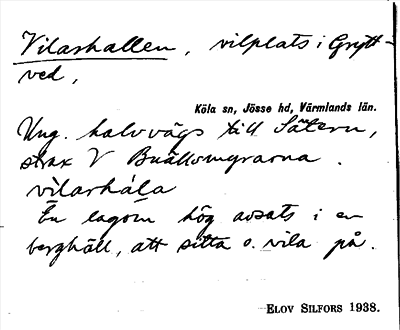 Vilarhallen, vilplats i Grytt-
ved,
Köla sn, Jösse hd, Värmlands län.
Ung. halvvägs till Sätern,
strax V Buällomyrarna.
vìlarhála
En lagom hög avsats i en
berghäll, att sitta o. vila på.
ELOV SILFORS 1938.